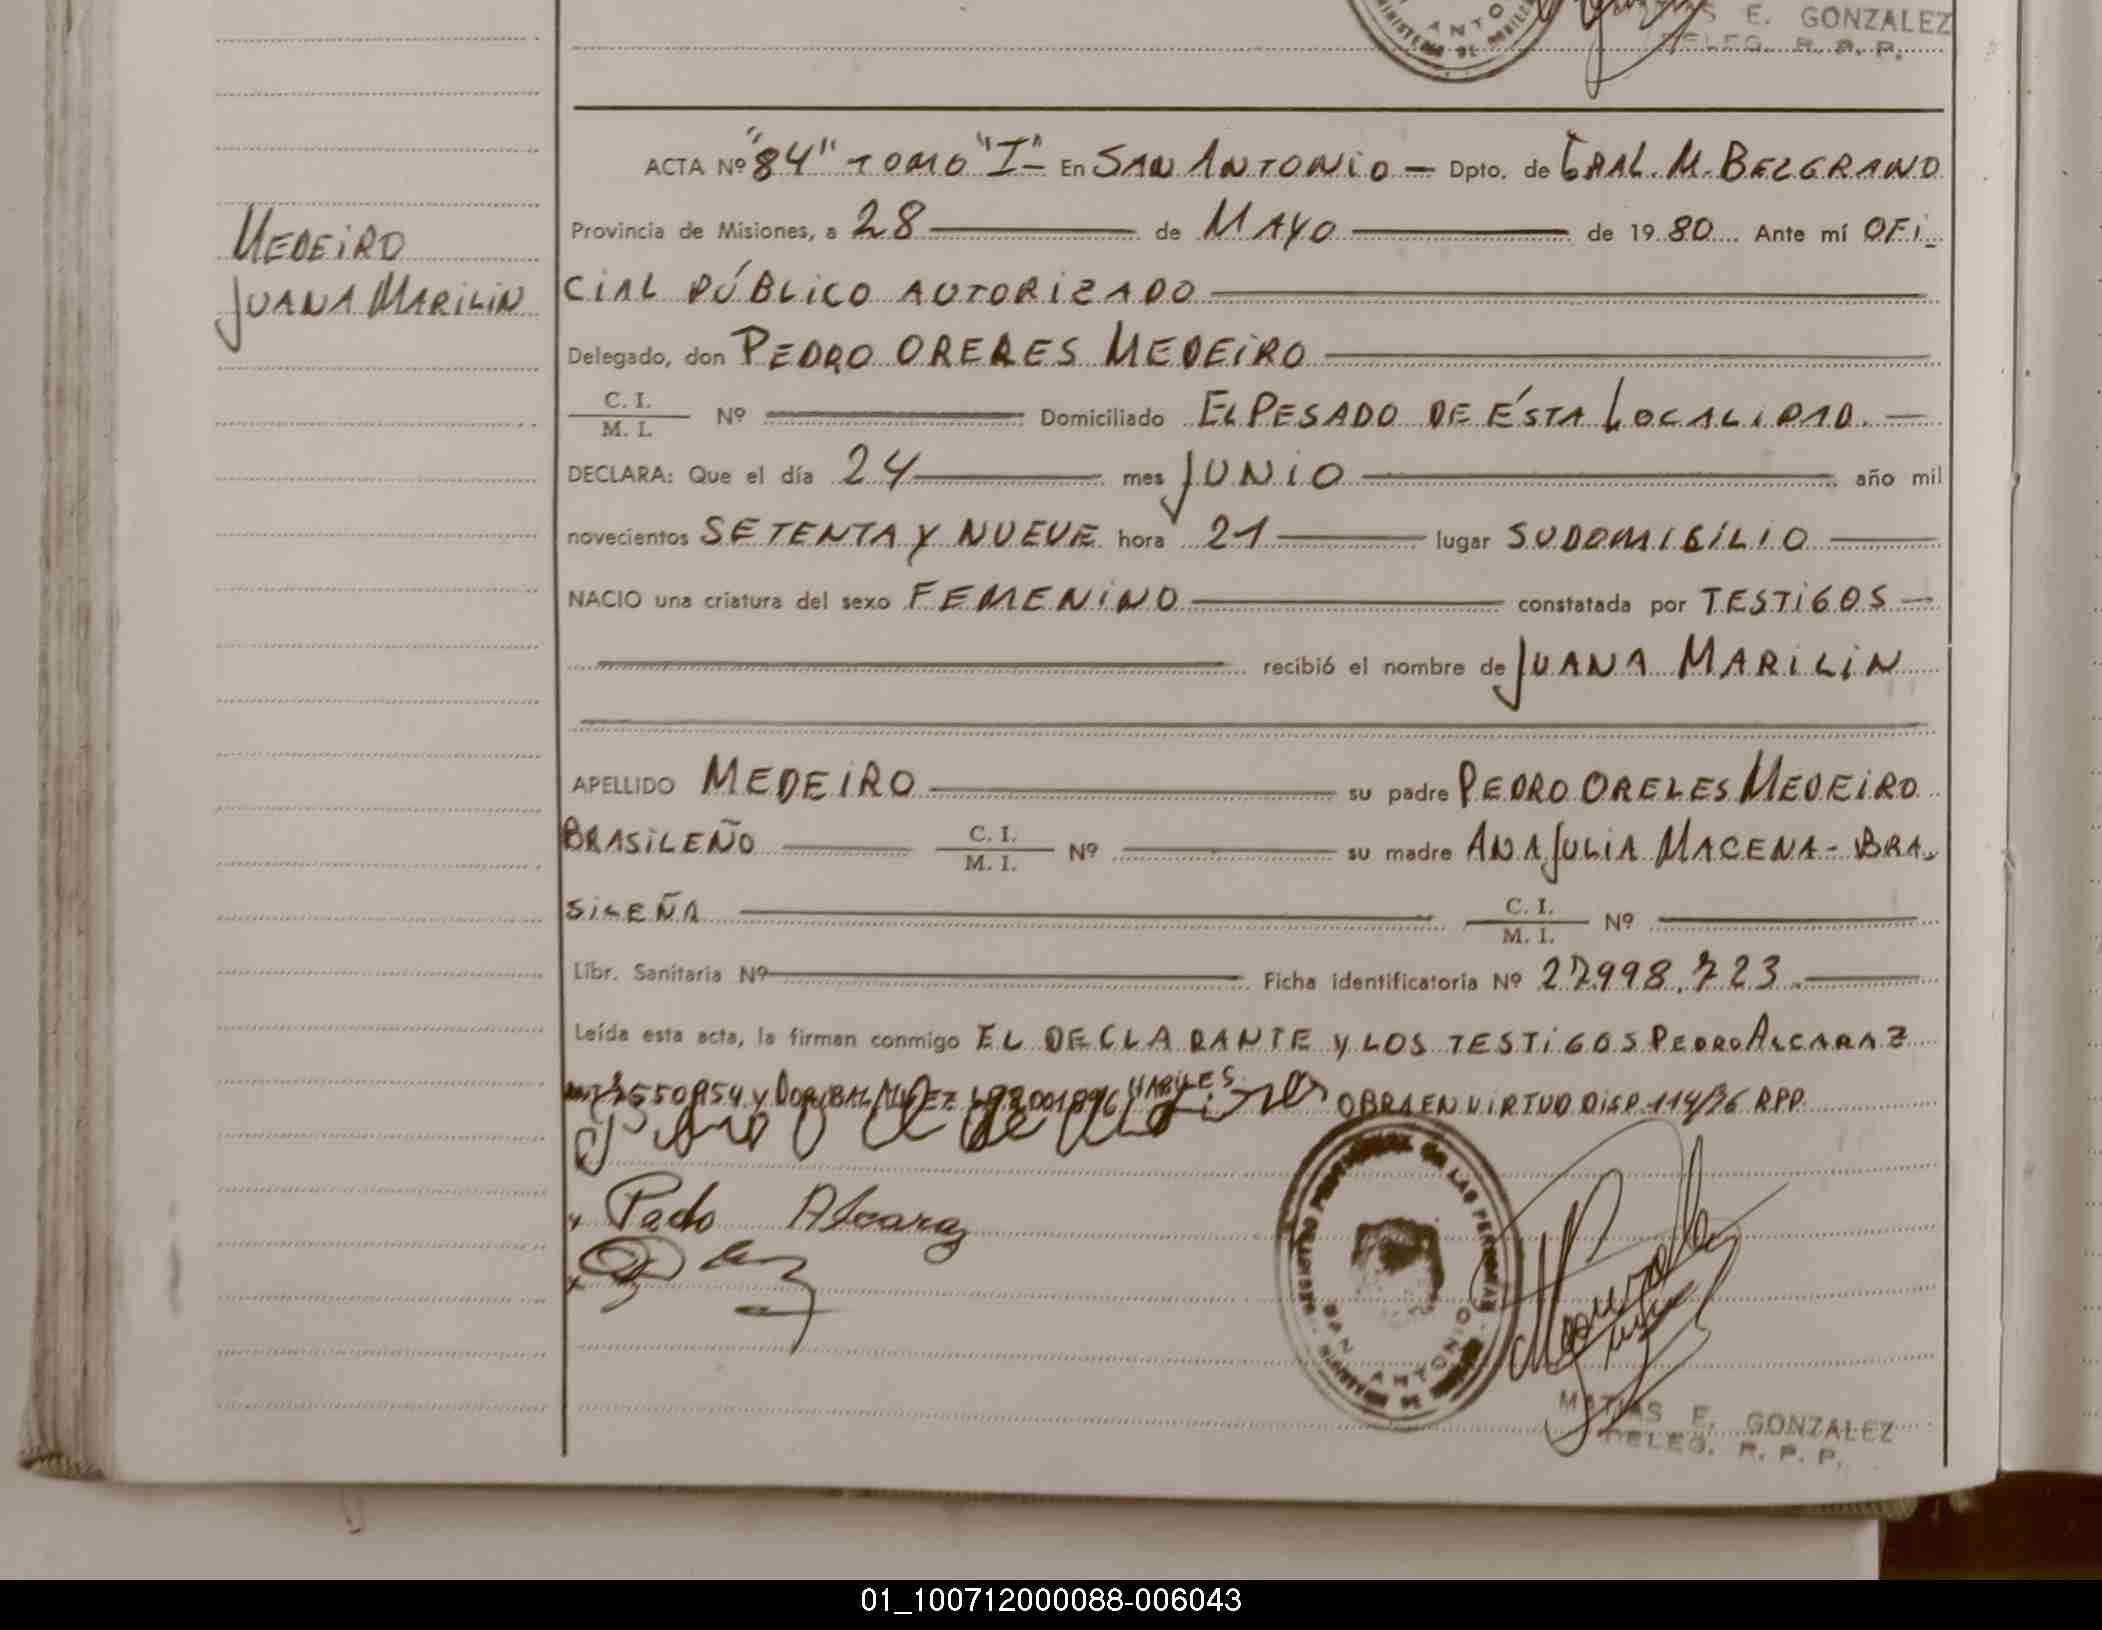 E. GONZALEZ
DELEG. R. P. P.
ACTA Nº "84" TOMO "I"- En SAN ANTONIO - Dpto. de GRAL. M. BELGRANO
Provincia de Misiones, a 28 de MAYO de 1980 Ante mí OFI-
CIAL PÚBLICO AUTORIZADO
MEDEIRO
JUANA MARILIN
Delegado, don PEDRO ORERES MEDEIRO
C. I. / M. I. Nº Domiciliado EL PESADO DE ÉSTA LOCALIDAD.-
DECLARA: Que el día 24 mes JUNIO año mil
novecientos SETENTA Y NUEVE hora 21 lugar SU DOMICÍLIO
NACIO una criatura del sexo FEMENINO constatada por TESTIGOS
recibió el nombre de JUANA MARILIN
APELLIDO MEDEIRO su padre PEDRO ORELES MEDEIRO
BRASILEÑO C. I. / M. I. Nº su madre ANA JULIA MACENA - BRA-
SILEÑA C. I. / M. I. Nº
Libr. Sanitaria Nº Ficha identificatoria Nº 27.998.723.
Leída esta acta, la firman conmigo EL DECLARANTE Y LOS TESTIGOS PEDRO ALCARAZ
Y HABILES OBRA EN VIRTUD DISP. 114/76 RPP.
Pedro Alcaraz
SAN ANTONIO
MATIAS E. GONZALEZ
DELEG. R. P. P.
01_100712000088-006043